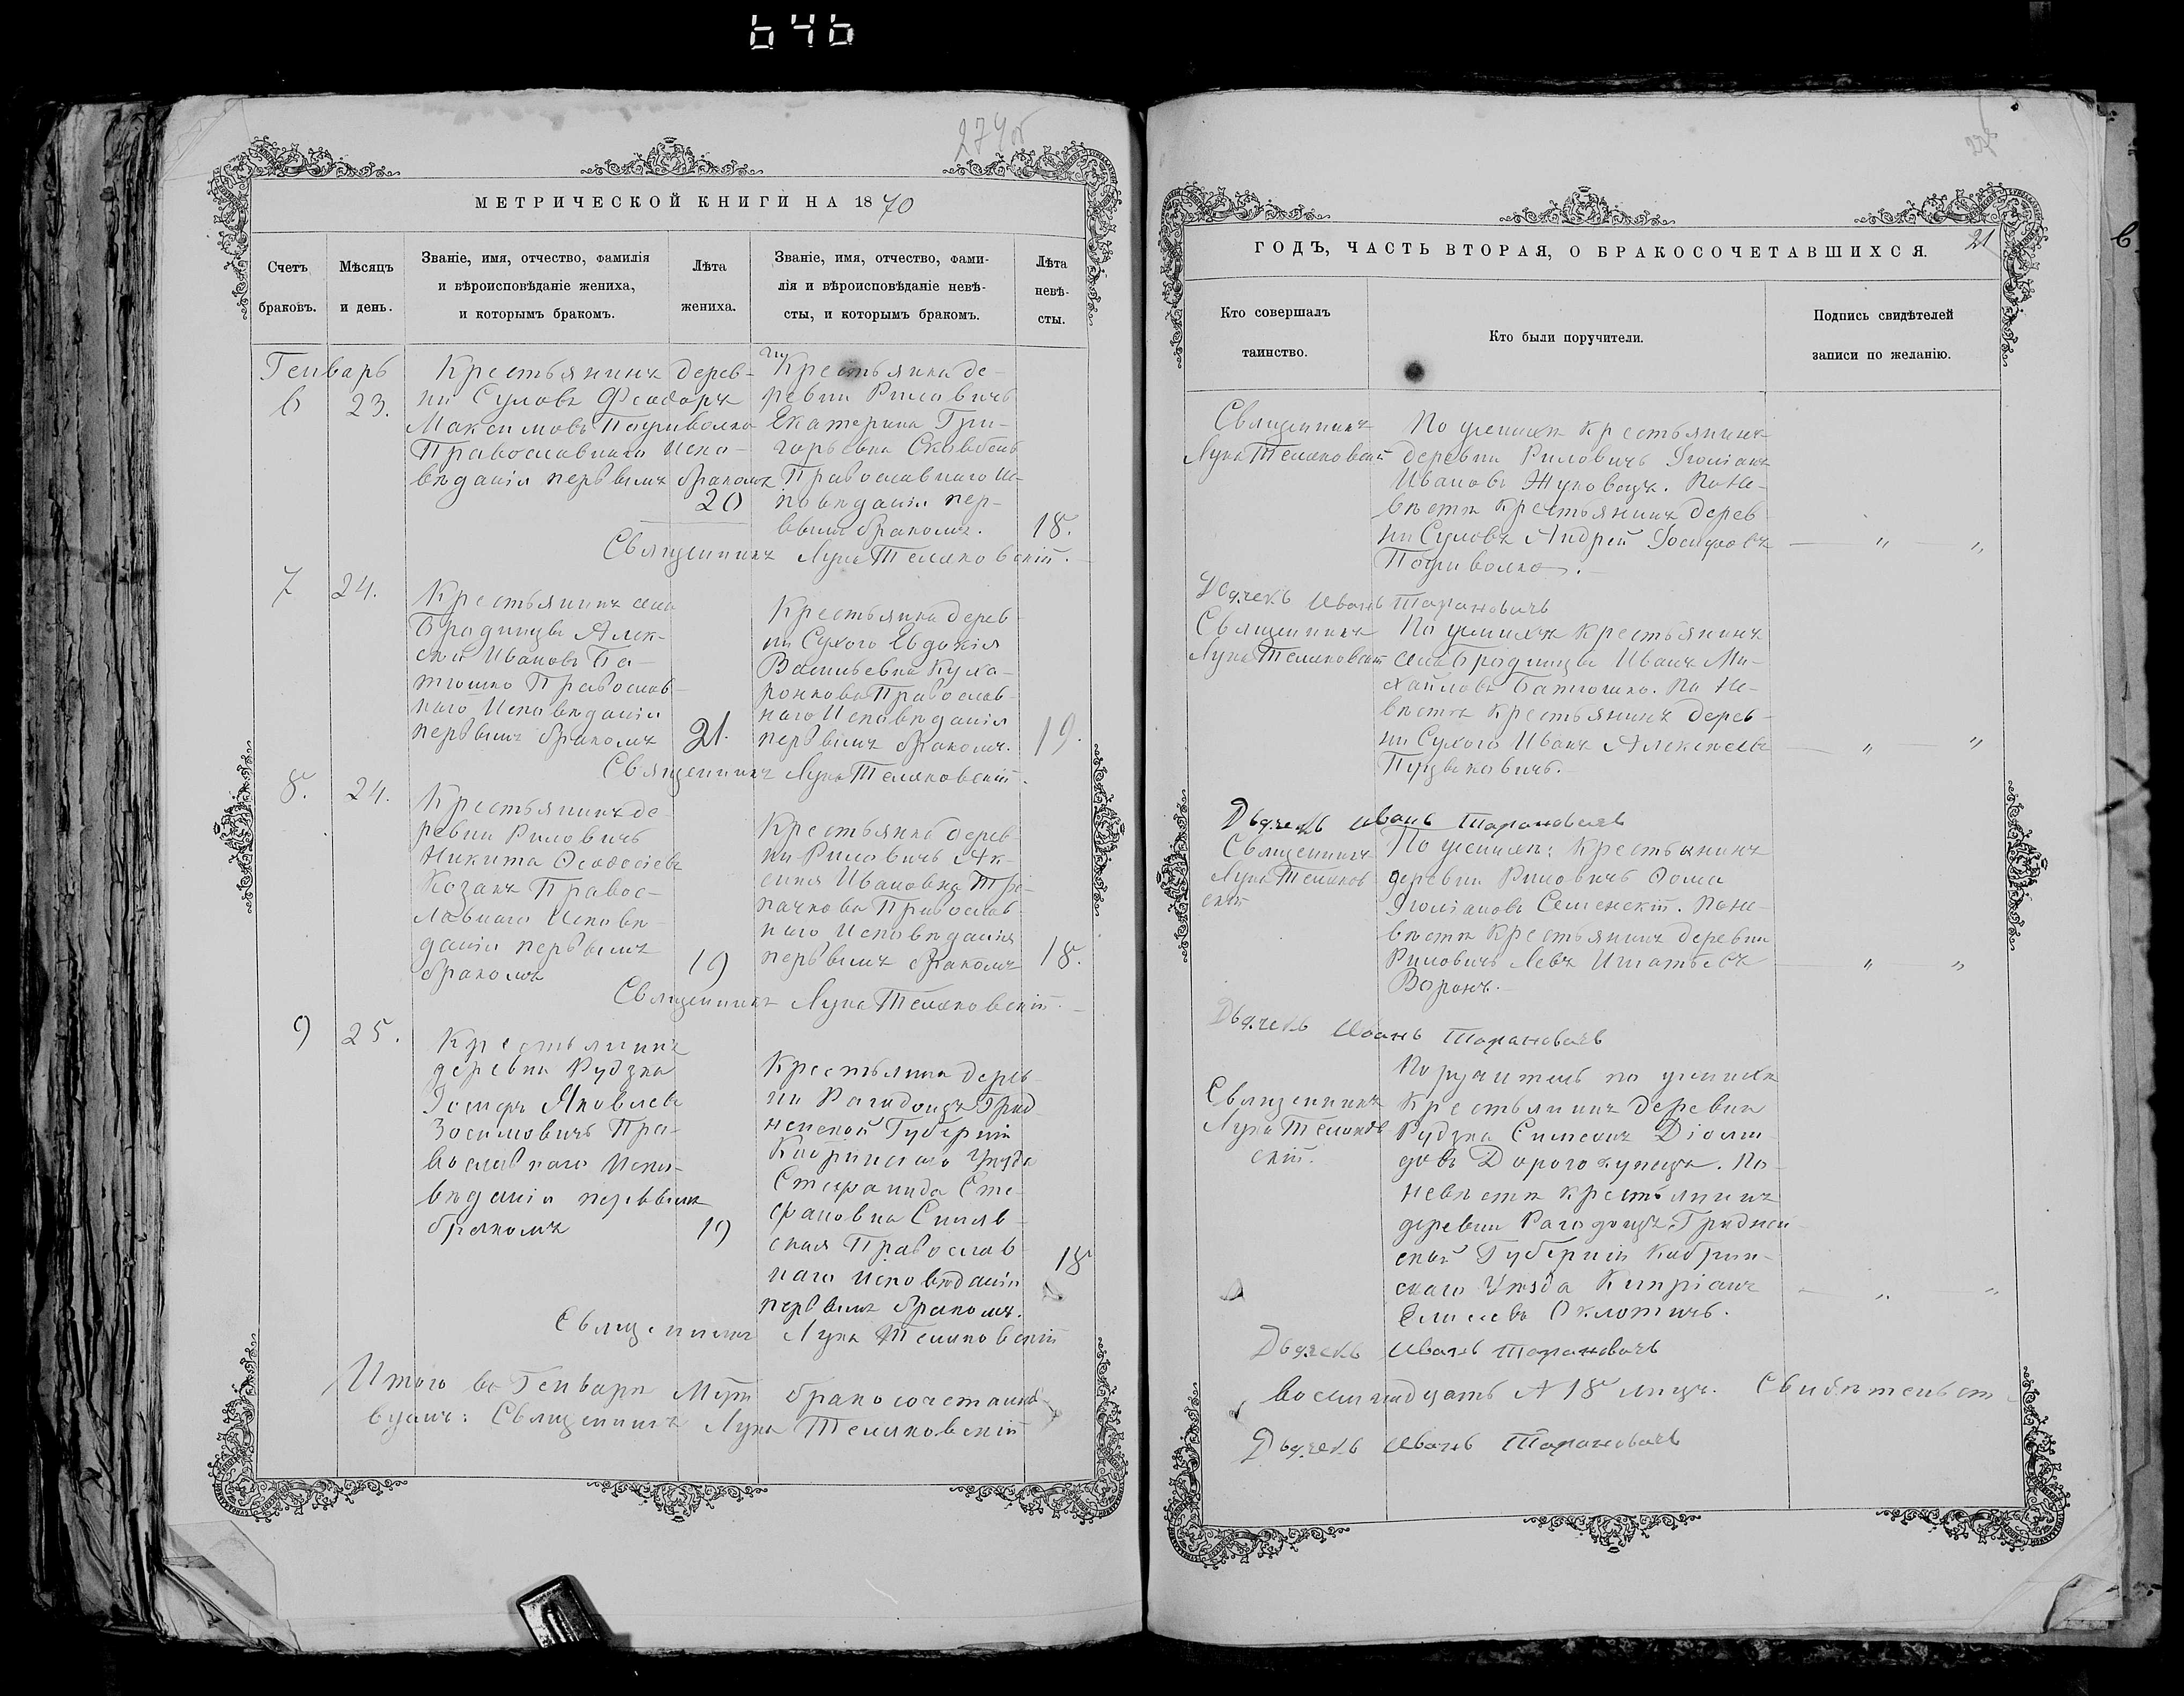 646
274об
МЕТРИЧЕСКОЙ КНИГИ НА 1870
Счетъ браковъ.
Мѣсяцъ и день.
Званіе, имя, отчество, фамилія
и вѣроисповѣданіе жениха,
и которымъ бракомъ.
Лѣта жениха.
Званіе, имя, отчество, фами-
лія и вѣроисповѣданіе невѣ-
сты, и которымъ бракомъ.
Лѣта невѣ-
сты.
Генварь
6
23.
Крестьянинъ дерев-
ни Суловъ Ѳеодоръ
Максимовъ
Православнаго Испо-
вѣданія первымъ бракомъ
20
Крестьянка де-
ревни Риловичь
Екатерина Гри-
горьевна
Православнаго Ис-
повѣданія пер-
вымъ бракомъ.
18.
Священникъ Лука Теляковскій.
7
24.
Крестьянинъ села
Бродницы Алек-
сѣй Ивановъ Ба-
тюшко Православ-
наго Исповѣданія
первымъ бракомъ
21.
Крестьянка дерев-
ни Сухого Евдокія
Васильевна Куха-
ронкова Православ-
наго Исповѣданія
первымъ бракомъ.
19.
Священникъ Лука Теляковскій.
8.
24.
Крестьянинъ де-
ревни Риловичь
Никита Ѳеодосіевъ
Козакъ Правос-
лавнаго Исповѣ-
данія первымъ
бракомъ
19
Крестьянка дерев-
ни Риловичь Ак-
синія Ивановна
Православ-
наго Исповѣданія
первымъ бракомъ
18.
Священникъ Лука Теляковскій.
9
25.
Крестьянинъ
деревни Рудзка
Іосифъ Яковлевъ
Зосимовичь Пра-
вославнаго Испо-
вѣданія первымъ
бракомъ
19
Крестьянка дерев-
ни
Губерніи
Кобринскаго Уѣзда
Стефанида Сте-
фановна
Православ-
наго исповѣданія
первымъ бракомъ.
18
Священникъ Лука Теляковскій
Итого въ Генварѣ М-цѣ бракосочетанныхъ
Священникъ Лука Теляковскій
21
ГОДЪ, ЧАСТЬ ВТОРАЯ, О БРАКОСОЧЕТАВШИХСЯ.
Кто совершалъ
таинство.
Кто были поручители.
Подпись свидѣтелей
записи по желанію.
Священникъ
Лука Теляковскій
По женихѣ крестьянинъ
деревни Риловичь Іоліанъ
Ивановъ Жуковецъ. По Не-
вѣстѣ крестьянинъ дерев-
ни Суловъ Андрей Іосифовъ
Дьячекъ Иванъ Тарановичь
Священникъ
Лука Теляковскій
По женихѣ крестьянинъ
села Бродницы Иванъ Ми-
хайловъ Батюшко. По Не-
вѣстѣ крестьянинъ дерев-
ни Сухого Иванъ Алексѣевъ
Дьячекъ Иванъ Тарановичь
Священникъ
Лука Теляков-
скій
По женихѣ: Крестьянинъ
деревни Риловичь Ѳома
Іоліановъ Семенскій. По не-
вѣстѣ Крестьянинъ деревни
Риловичь Левъ Игнатьевъ
Воронъ.
Дьячекъ Иванъ Тарановичь
Священникъ
Лука Теляков-
скій.
Поручитель по женихѣ
Крестьянинъ деревни
Рудзка Симеонъ Діоми-
довъ Дорогокупецъ. По
невѣстѣ крестьянинъ
деревни
Губерніи Кобрин-
скаго Уѣзда Кипріанъ
Елисеевъ
Дьячекъ Иванъ Тарановичь
восемнадцать № 18 лицъ.
Дьячекъ Иванъ Тарановичь